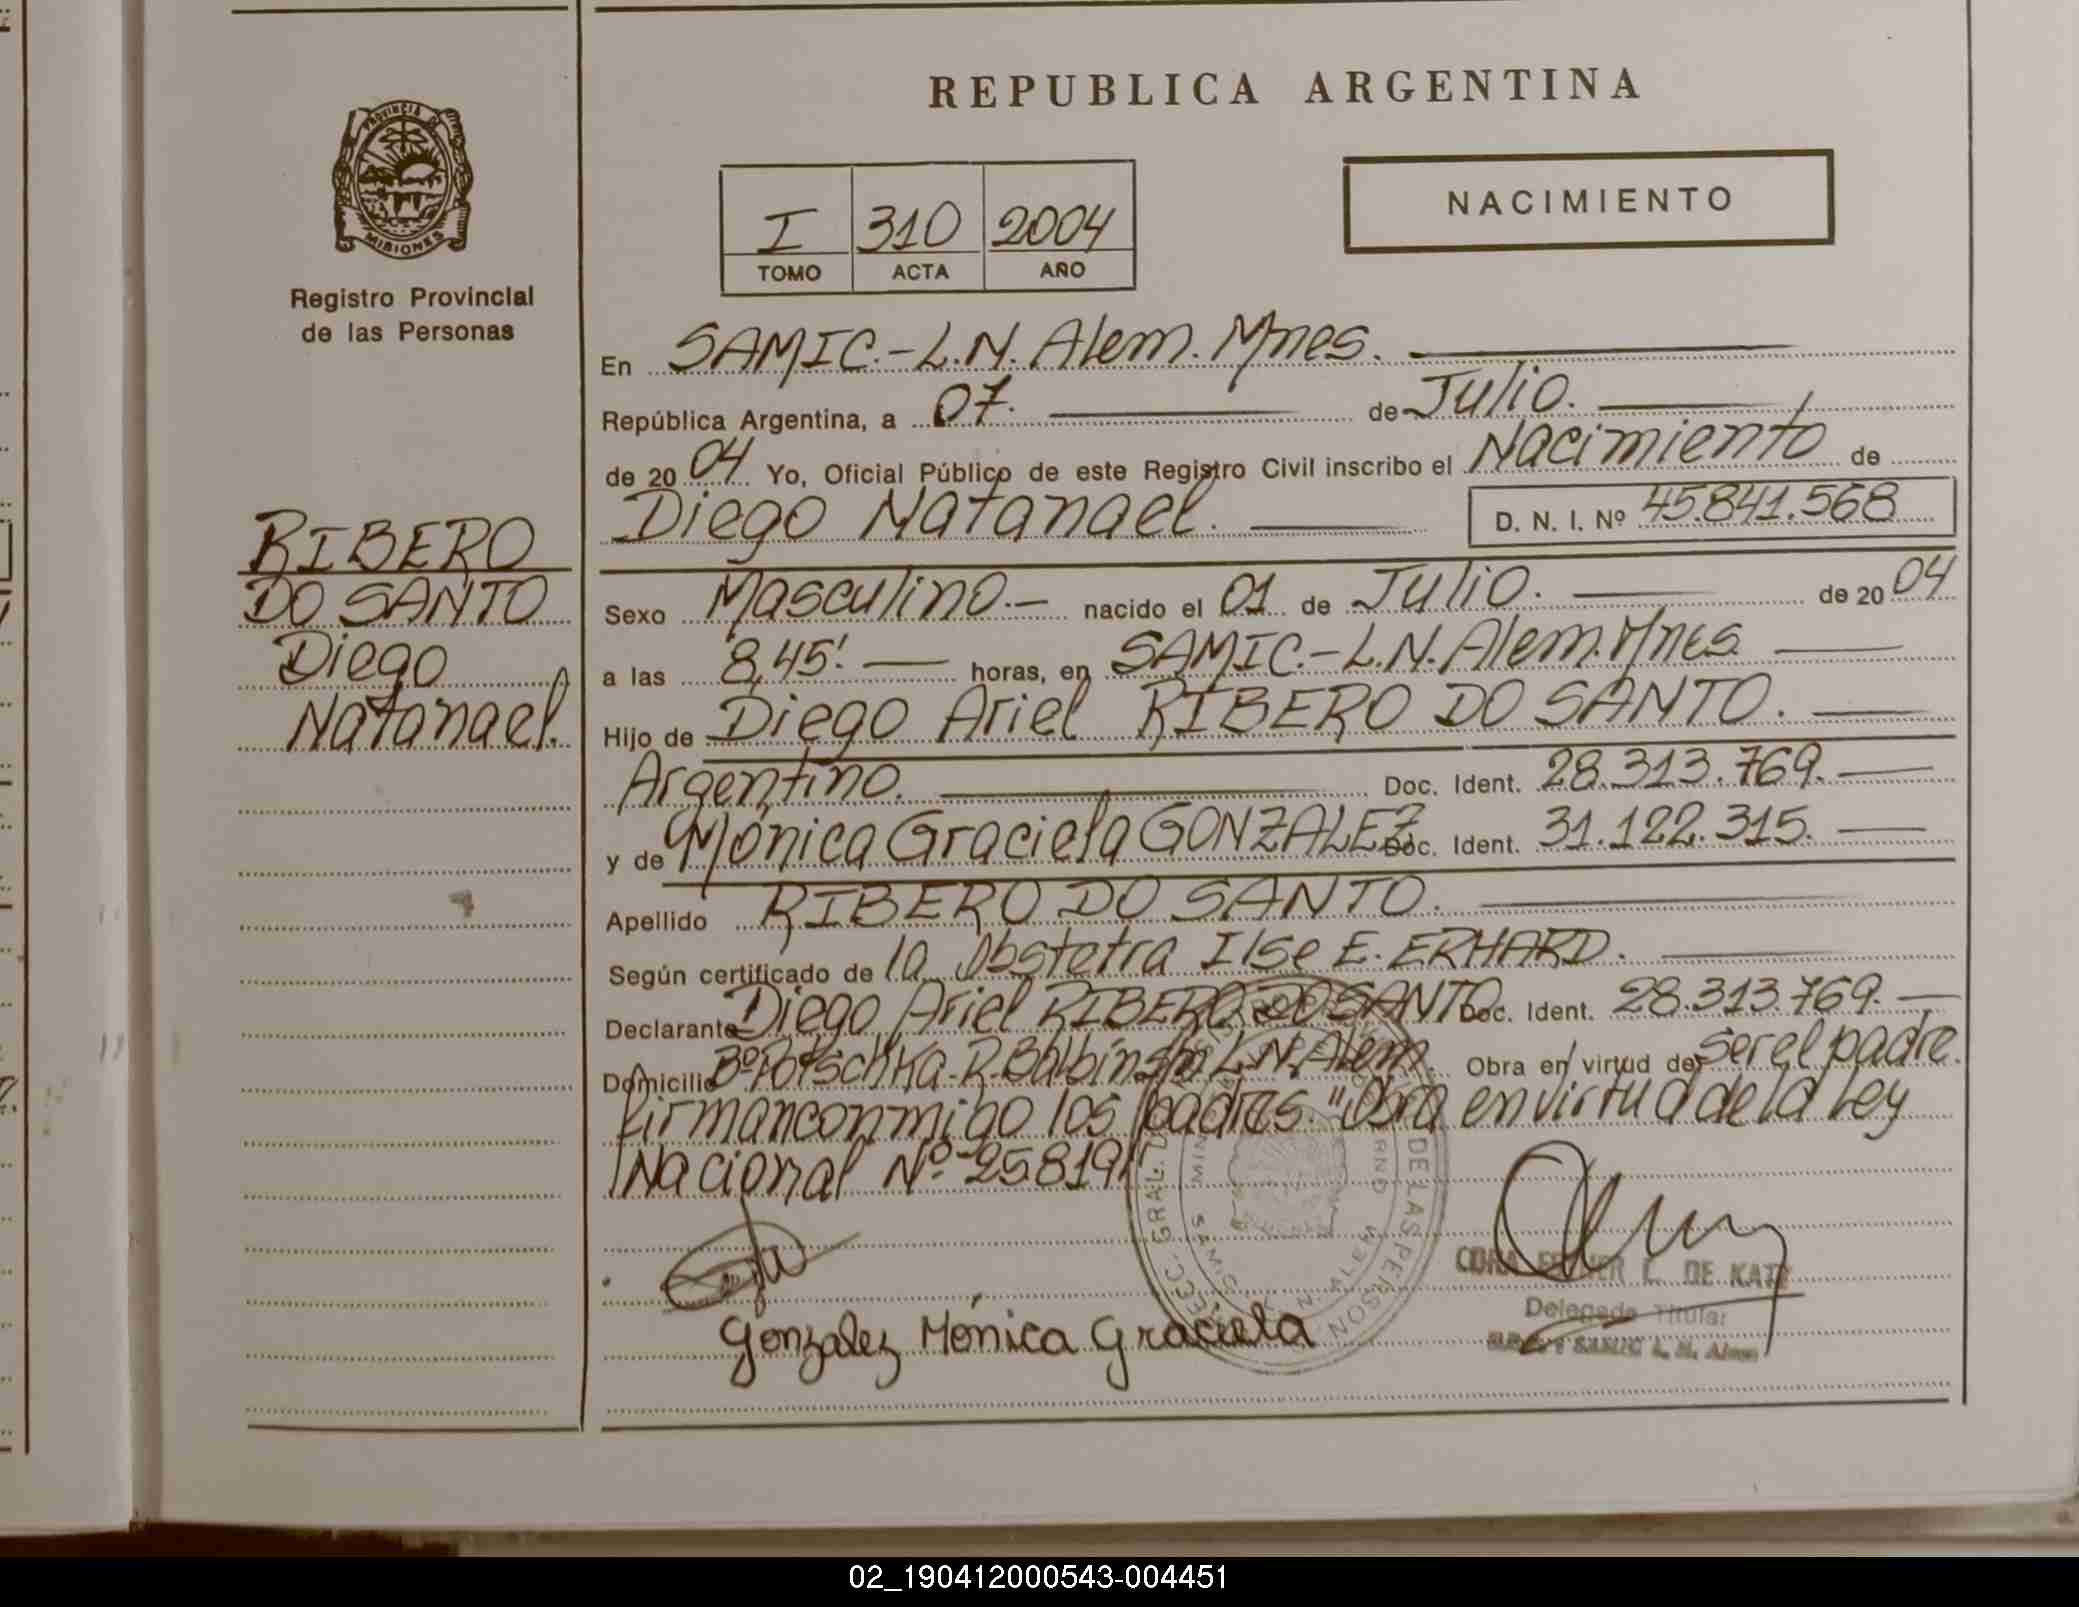 REPUBLICA ARGENTINA
PROVINCIA DE
MISIONES
Registro Provincial
de las Personas
I 310 2004
TOMO ACTA AÑO
NACIMIENTO
RIBERO
DO SANTO
Diego
Natanael.
En SAMIC.-L.N. Alem. Mnes.
República Argentina, a 07. de Julio.
de 2004 Yo, Oficial Público de este Registro Civil inscribo el Nacimiento de
Diego Natanael. D. N. I. Nº 45.841.568
Sexo Masculino.- nacido el 01 de Julio. de 2004
a las 8,45'. horas, en SAMIC.-L.N. Alem. Mnes.
Hijo de Diego Ariel RIBERO DO SANTO.
Argentino. Doc. Ident. 28.313.769.
y de Mónica Graciela GONZALEZ Doc. Ident. 31.122.315.
Apellido RIBERO DO SANTO.
Según certificado de la Obstetra Ilse E. ERHARD.
Declarante Diego Ariel RIBERO DO SANTO Doc. Ident. 28.313.769.
Domicilio Bº Potschka-R. Balbín s/n L.N. Alem. Obra en virtud de ser el padre.
Firman conmigo los padres. "Obra en virtud de la Ley
Nacional Nº 25819"
DE LAS PERSON
L. DE KATZ
Delegada Titular
SAMIC L. N. Alem
Gonzalez Mónica Graciela
02_190412000543-004451